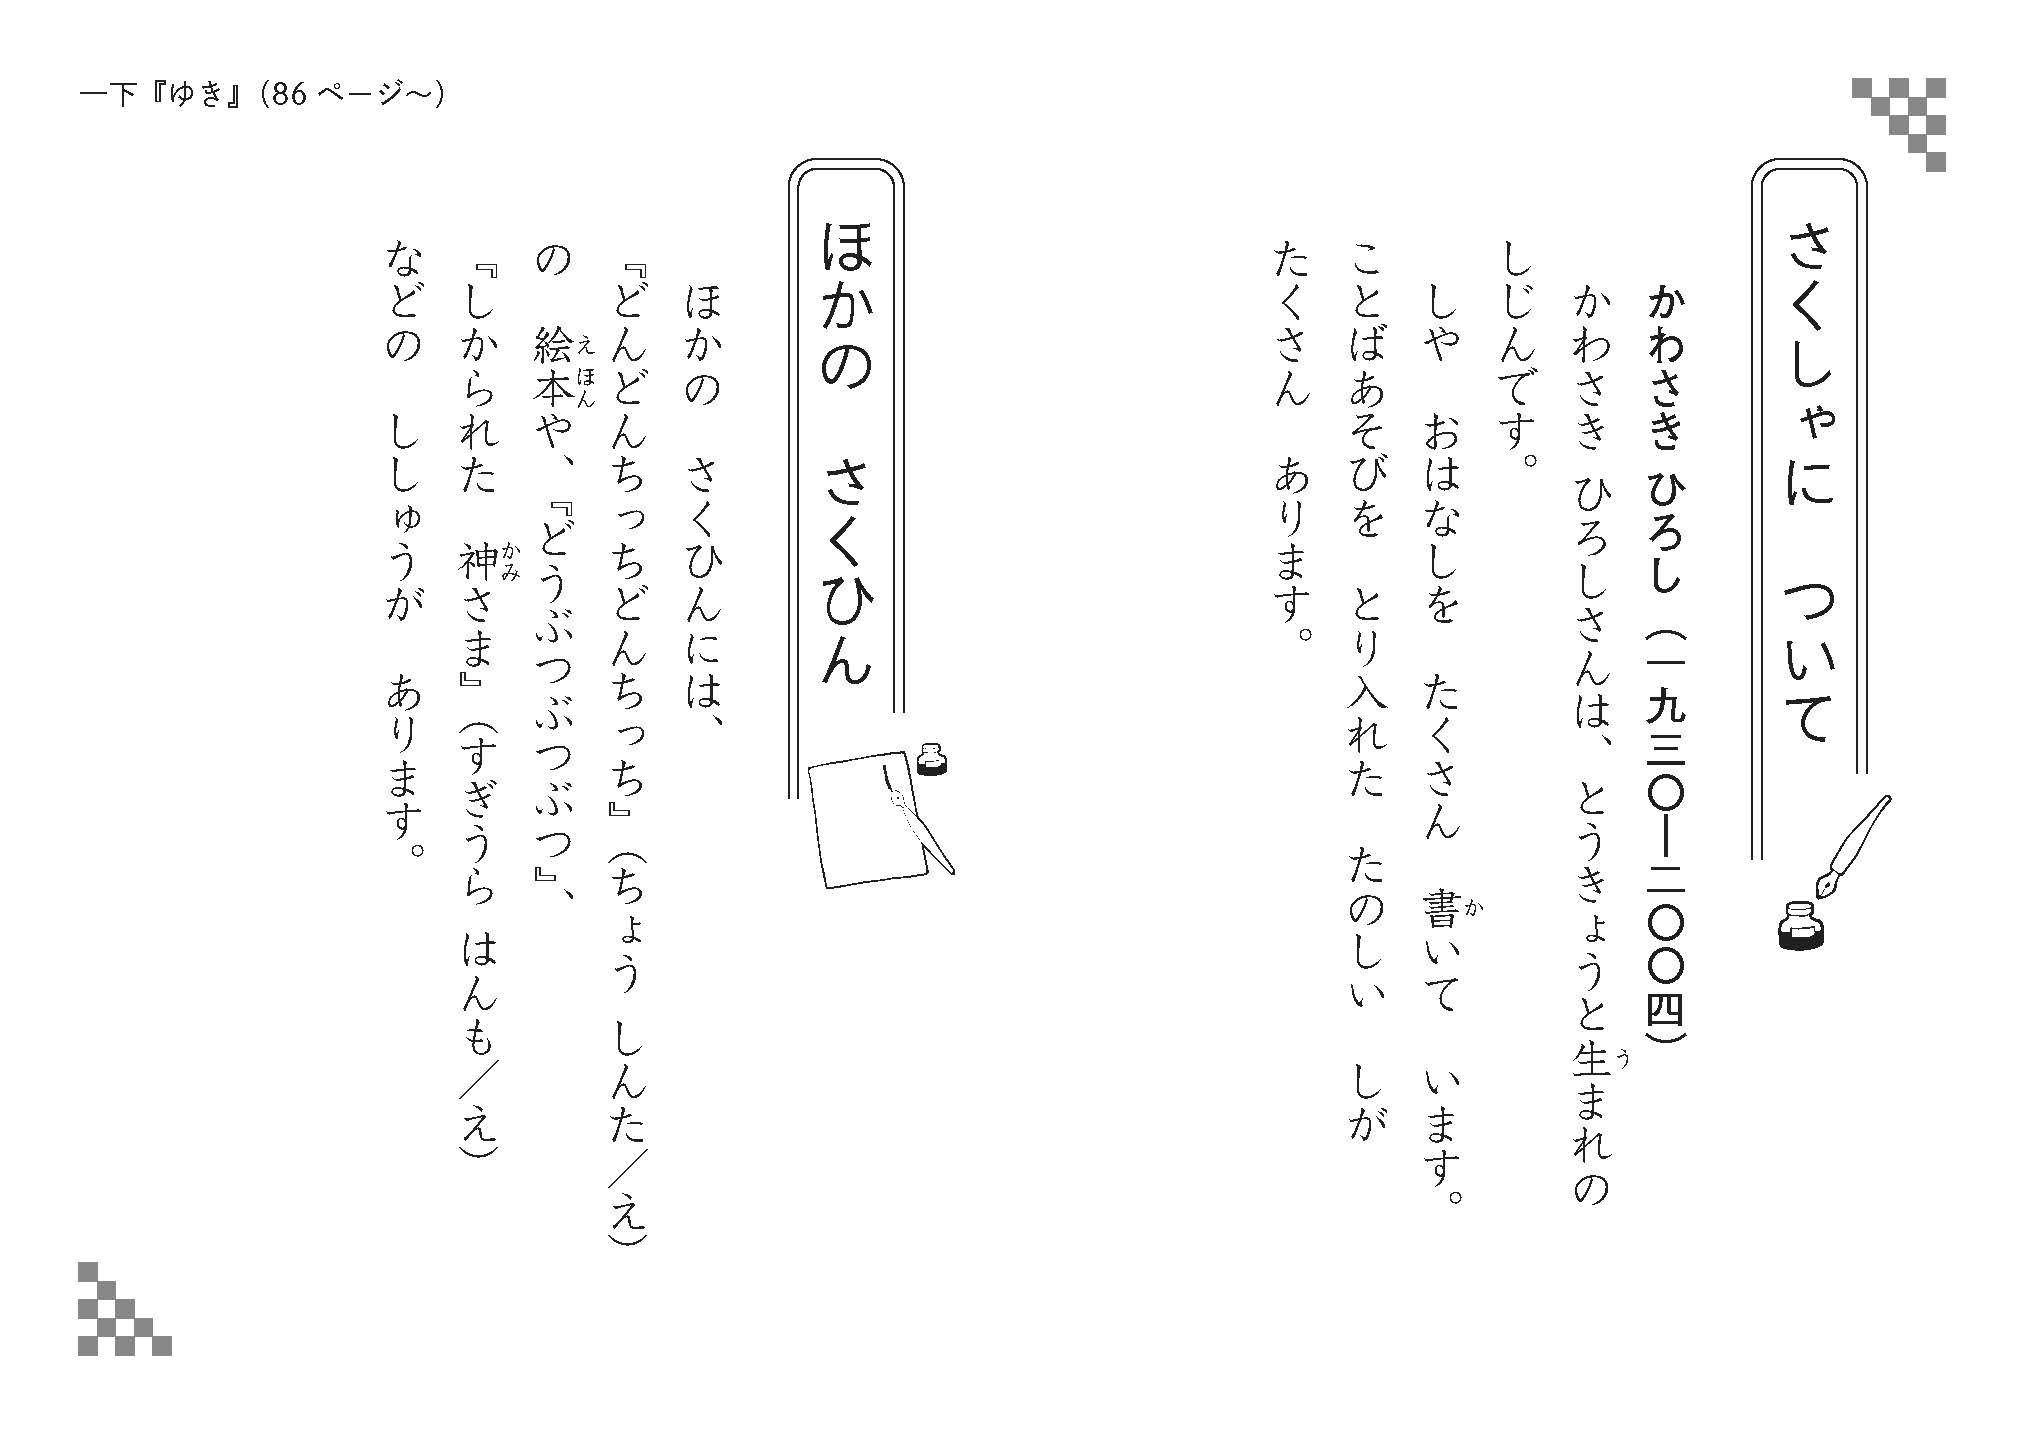 一下『ゆき』（86 ページ～）
さくしゃに　ついて
かわさき ひろし（一九三〇―二〇〇四）
かわさき ひろしさんは、とうきょうと生まれの
う
しじんです。
しや　おはなしを　たくさん　書いて　います。
か
ことばあそびを　とり入れた　たのしい　しが
たくさん　あります。
ほかの　さくひん
ほかの　さくひんには、
『どんどんちっちどんちっち』（ちょう しんた／え）
の　絵本や、『どうぶつぶつぶつ』、
えほん
『しかられた　神さま』（すぎうら はんも／え）
かみ
などの　ししゅうが　あります。